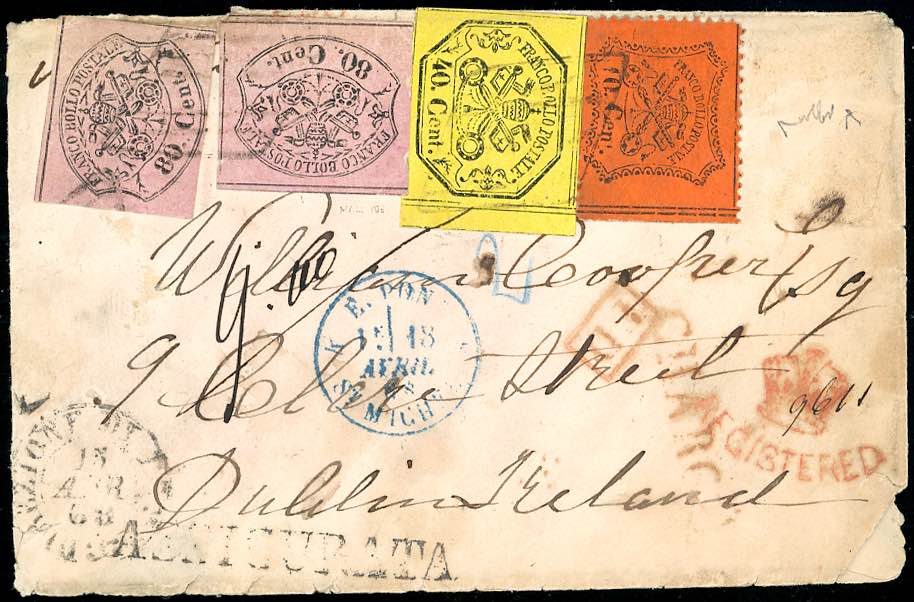 FRANCO BOLLO POSTALE
80 Cent.
FRANCO BOLLO POSTALE
80. Cent.
FRANCO BOLLO POSTALE
40. Cent.
FRANCO BOLLO POSTALE
10. Cent.
William Cooper Esq
9 Clare Street
Dublin Ireland
E. PON
18
AVRIL
68
ST MICHEL
PD
CHARGÉ
REGISTERED
9611
15
APR
68
ASSICURATA